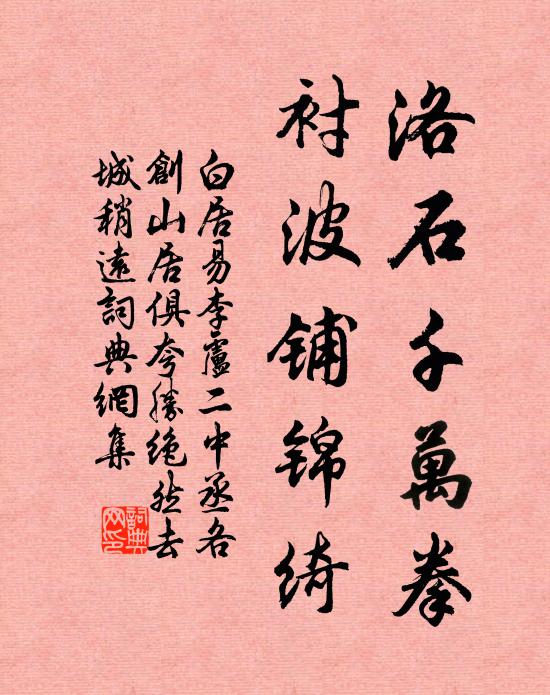 洛石千萬拳
衬波铺锦绮
白居易李廬二中丞各
創山居俱夸勝絶然去
城稍遠詞典網集
詞典网印